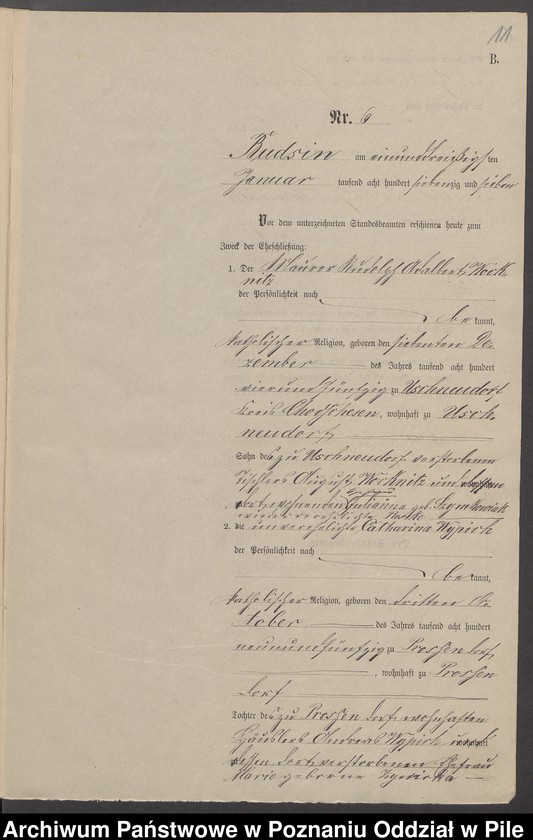 11
B.
Nr. 6
Budsin am einunddreißigsten
Januar tausend acht hundert siebenzig und sieben
Vor dem unterzeichneten Standesbeamten erschienen heute zum
Zweck der Eheschließung:
1. Der Maurer Rudolf Adalbert Wock-
nitz
der Persönlichkeit nach
be kannt,
katholischer Religion, geboren den siebenten De-
zember des Jahres tausend acht hundert
vierundfünfzig zu Uschneudorf
Kreis Chodschesen, wohnhaft zu Usch-
neudorf
Sohn des zu Uschneudorf verstorbenen
Tischlers August Wocknitz und
dort wohnenden Julianna geb.
wieder verehelichte
2. die unverehelichte Catharina Wypich
der Persönlichkeit nach
be kannt,
katholischer Religion, geboren den dritten Ok-
tober des Jahres tausend acht hundert
neunundfünfzig zu Prossen dorf
, wohnhaft zu Prossen
dorf
Tochter des zu Prossen dorf wohnhaften
Häuslers Andreas Wypich und
dessen dort verstorbenen Ehefrau
Marie geborene
Archiwum Państwowe w Poznaniu Oddział w Pile